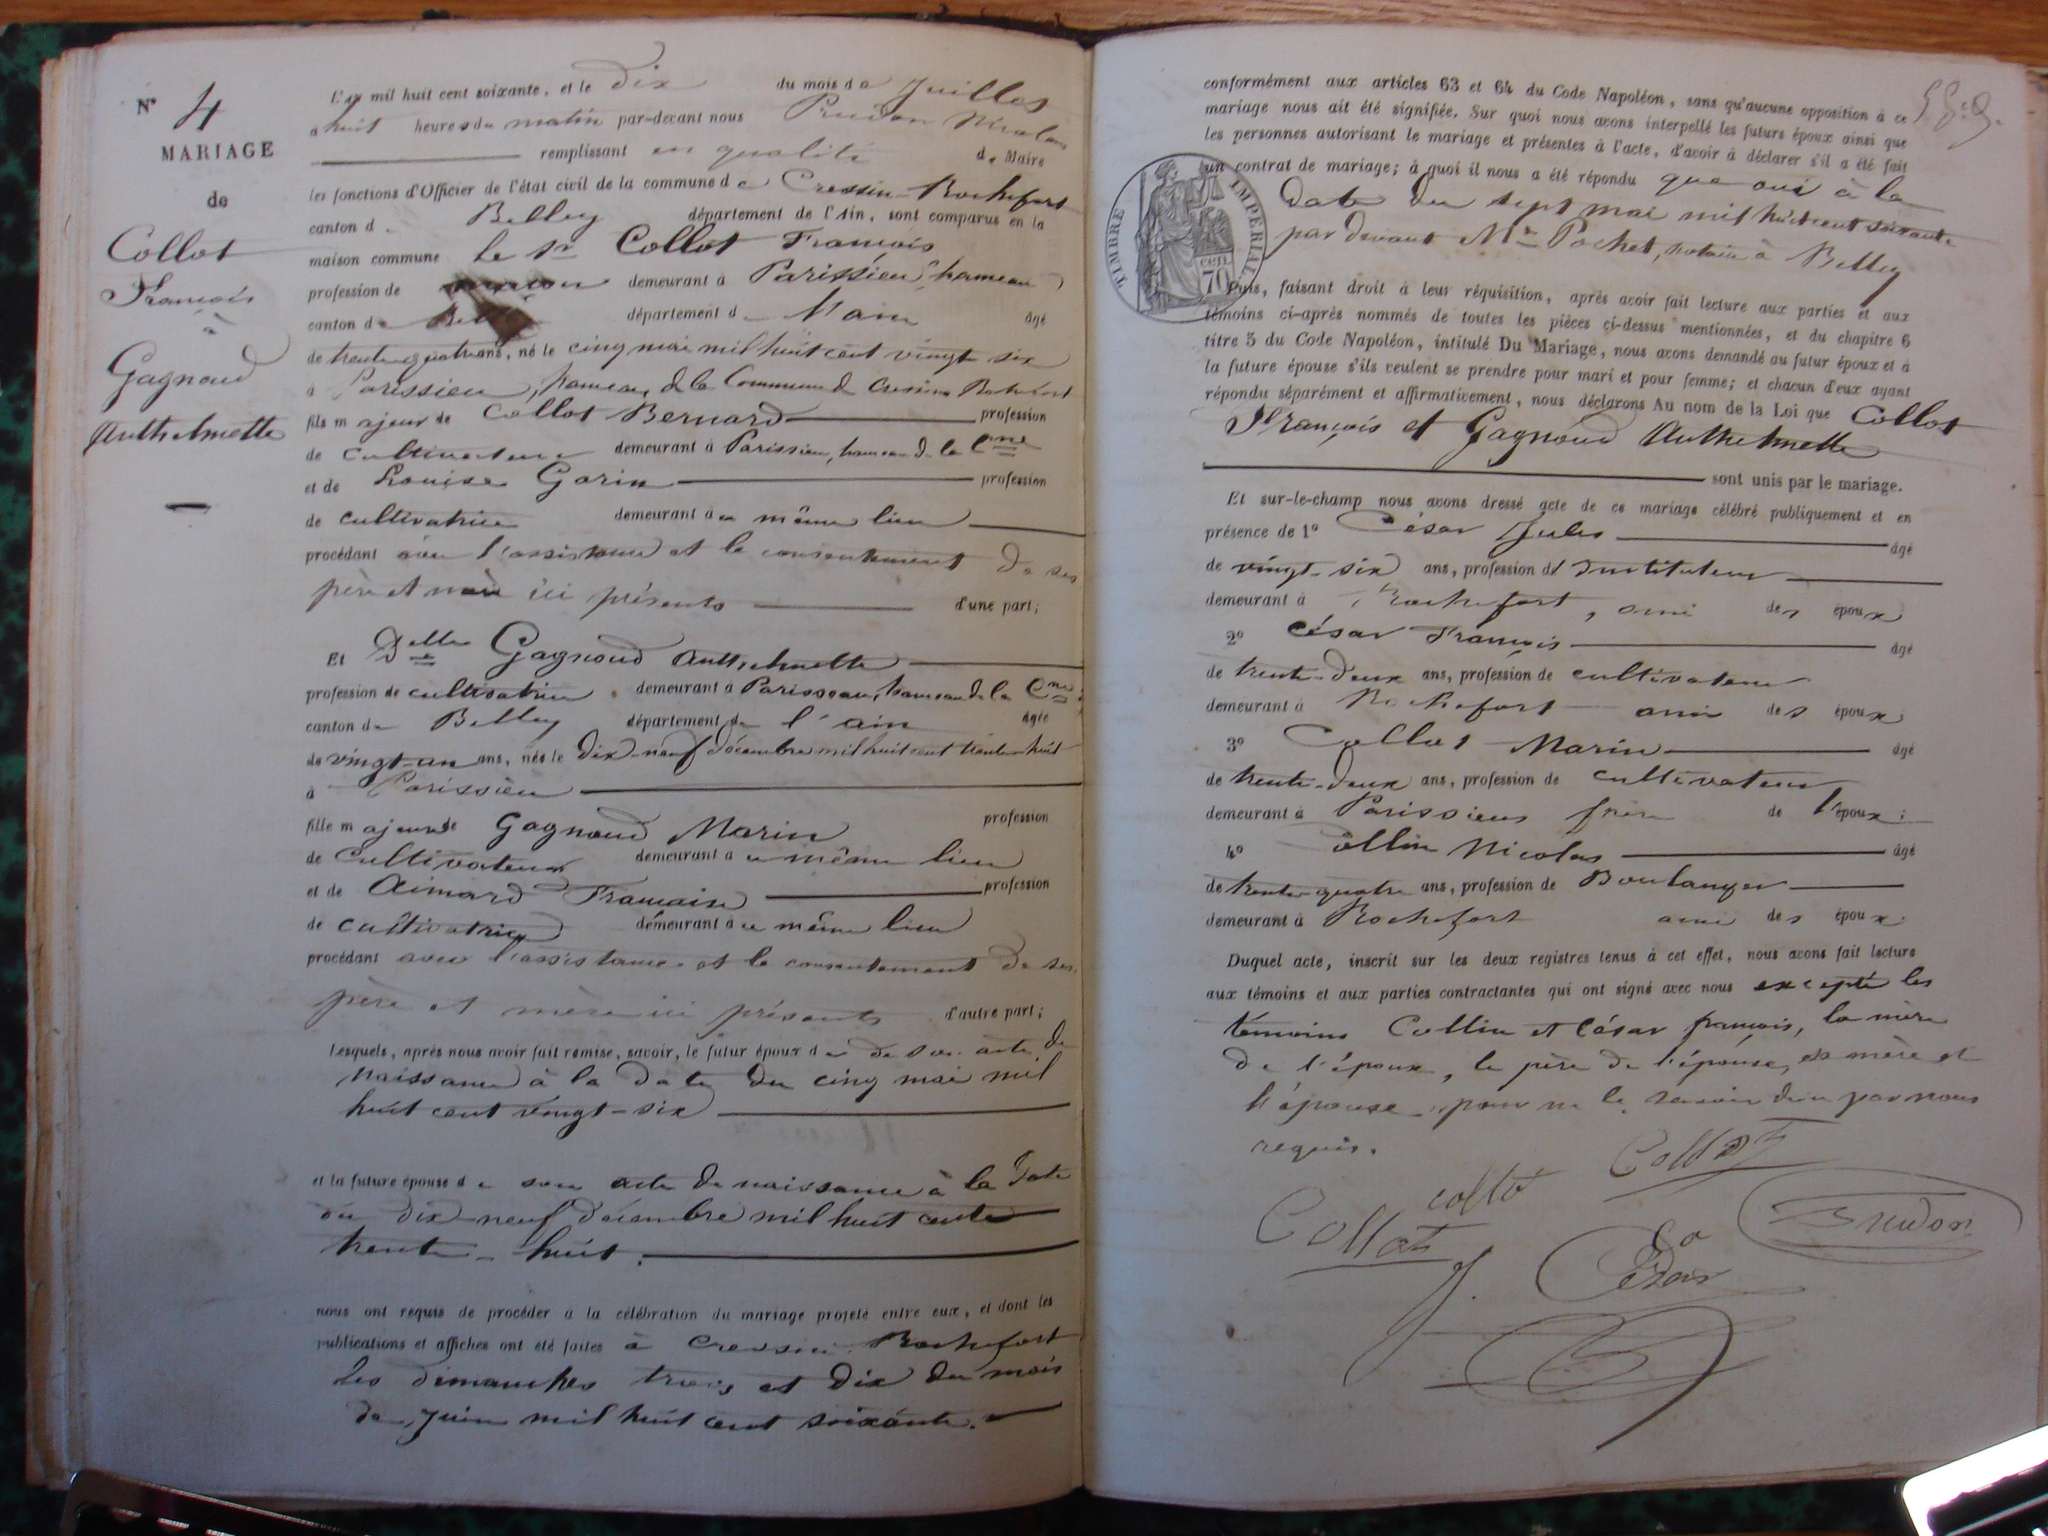 N° 4
MARIAGE
de
Collot
François
à
Gagnoud
Anthelmette
L'an mil huit cent soixante, et le dix du mois de Juillet
à huit heures du matin par-devant nous Nicolas
remplissant en qualité de Maire
les fonctions d'Officier de l'état civil de la commune de Cressin-Rochefort
canton de Belley département de l'Ain, sont comparus en la
maison commune le Sr Collot François
profession de demeurant à Parissieu, hameau
canton de département de l'ain âgé
de trente quatre ans, né le cinq mai mil huit cent vingt six
à Parissieu, hameau de la Commune de Cressin Rochefort
fils majeur de Collot Bernard profession
de cultivateur demeurant à Parissieu, hameau de la Cne
et de Louise Gorin profession
de cultivatrice demeurant à ce même lieu
procédant avec l'assistance et le consentement de ses
père et mère ici présents d'une part;
Et Delle Gagnoud Anthelmette
profession de cultivatrice demeurant à Parissieu, hameau de la Cne
canton de Belley département de l'ain âgée
de vingt-un ans, née le dix-neuf décembre mil huit cent trente huit
à Parissieu
fille majeure de Gagnoud Marin profession
de cultivateur demeurant à ce même lieu
et de Aimard Françoise profession
de cultivatrice demeurant à ce même lieu
procédant avec l'assistance et le consentement de ses
père et mère ici présents d'autre part;
Lesquels, après nous avoir fait remise, savoir, le futur époux de de son acte de
naissance à la date du cinq mai mil
huit cent vingt-six
et la future épouse de son acte de naissance à la date
du dix-neuf décembre mil huit cent
trente-huit.
nous ont requis de procéder à la célébration du mariage projeté entre eux, et dont les
publications et affiches ont été faites à Cressin Rochefort
les dimanches trois et dix du mois
de juin mil huit cent soixante.
conformément aux articles 63 et 64 du Code Napoléon, sans qu'aucune opposition à ce
mariage nous ait été signifiée. Sur quoi nous avons interpellé les futurs époux ainsi que
les personnes autorisant le mariage et présentes à l'acte, d'avoir à déclarer s'il a été fait
un contrat de mariage; à quoi il nous a été répondu que oui à la
date du sept mai mil huit cent soixante
par devant Me Pochet, notaire à Belley
TIMBRE IMPÉRIAL
70 cen.
Puis, faisant droit à leur réquisition, après avoir fait lecture aux parties et aux
témoins ci-après nommés de toutes les pièces ci-dessus mentionnées, et du chapitre 6
titre 5 du Code Napoléon, intitulé Du Mariage, nous avons demandé au futur époux et à
la future épouse s'ils veulent se prendre pour mari et pour femme; et chacun d'eux ayant
répondu séparément et affirmativement, nous déclarons Au nom de la Loi que Collot
François et Gagnoud Anthelmette
sont unis par le mariage.
Et sur-le-champ nous avons dressé acte de ce mariage célébré publiquement et en
présence de 1° César Jules âgé
de vingt-six ans, profession d'Instituteur
demeurant à Rochefort, ami des époux
2° César François âgé
de trente-deux ans, profession de cultivateur
demeurant à Rochefort ami des époux
3° Collot Marin âgé
de trente-deux ans, profession de cultivateur
demeurant à Parissieu frère de l'époux;
4° Collin Nicolas âgé
de trente-quatre ans, profession de Boulanger
demeurant à Rochefort ami des époux
Duquel acte, inscrit sur les deux registres tenus à cet effet, nous avons fait lecture
aux témoins et aux parties contractantes qui ont signé avec nous excepté les
témoins Collin et César françois, la mère
de l'époux, le père de l'épouse, sa mère et
l'épouse pour ne le savoir de ce par nous
requis.
Collot
collot
Collot
J. César